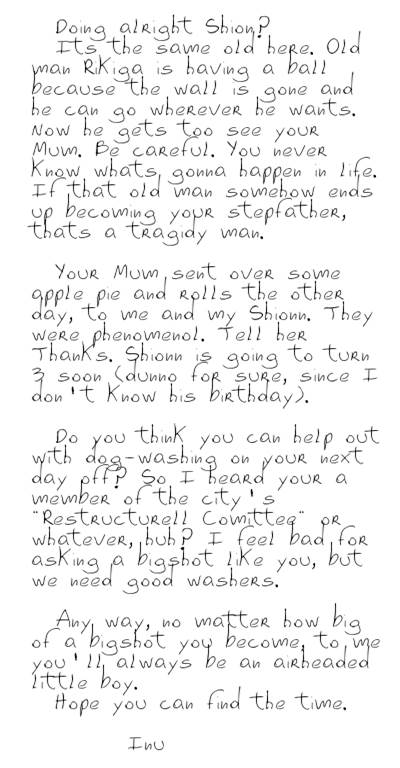 Doing alright Shion?
Its the same old here. Old
man Rikiga is having a ball
because the wall is gone and
he can go wherever he wants.
Now he gets too see your
Mum. Be careful. You never
know whats gonna happen in life.
If that old man somehow ends
up becoming your stepfather,
thats a tragidy man.
Your Mum sent over some
apple pie and rolls the other
day, to me and my Shionn. They
were phenomenol. Tell her
Thanks. Shionn is going to turn
3 soon (dunno for sure, since I
don't know his birthday).
Do you think you can help out
with dog-washing on your next
day off? So I heard your a
member of the city's
"Restructurell Comittee" or
whatever, huh? I feel bad for
asking a bigshot like you, but
we need good washers.
Any way, no matter how big
of a bigshot you become, to me
you'll always be an airheaded
little boy.
Hope you can find the time.
Inu